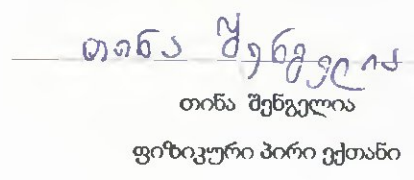 თინა შენგელია
თინა შენგელია
ფიზიკური პირი ექთანი